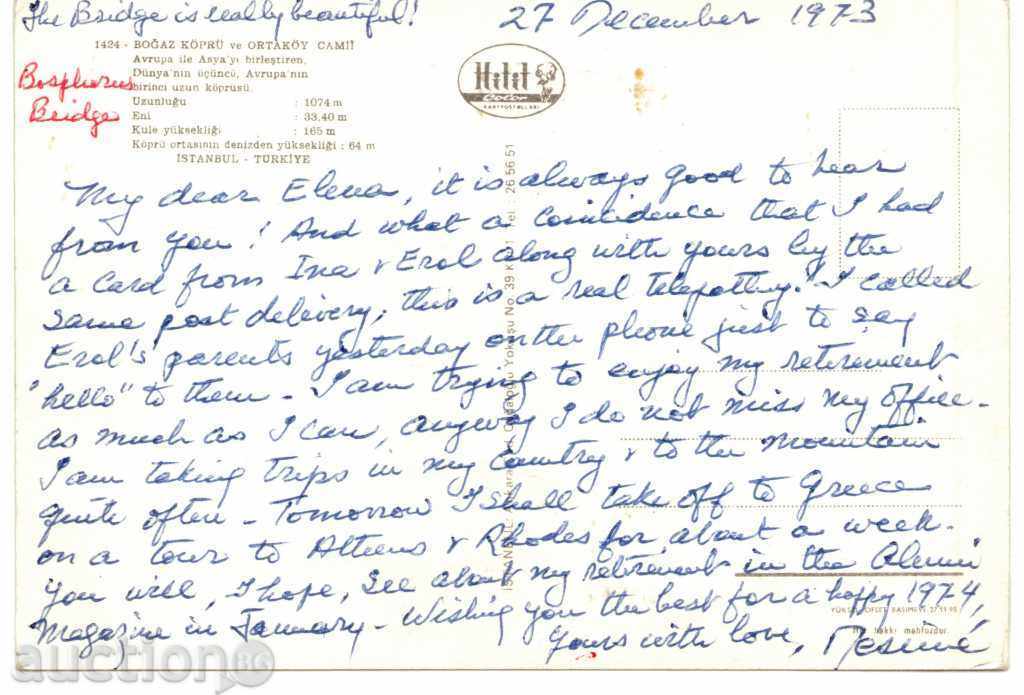 The Bridge is really beautiful!
27 December 1973
1424 - BOĞAZ KÖPRÜ ve ORTAKÖY CAMİİ
Avrupa ile Asya'yı birleştiren,
Dünya'nın üçüncü, Avrupa'nın
birinci uzun köprüsü.
Uzunluğu : 1074 m
Eni : 33,40 m
Kule yüksekliği : 165 m
Köprü ortasının denizden yüksekliği : 64 m
İSTANBUL - TÜRKİYE
Bosphurus
Bridge
Hitit
Color
KARTPOSTALLARI
My dear Elena, it is always good to hear
from you! And what a coincidence that I had
a card from Ina & Erol along with yours by the
same post delivery, this is a real telepathy! I called
Erol's parents yesterday on the phone just to say
"hello" to them - I am trying to enjoy my retirement
as much as I can, anyway I do not miss my office -
I am taking trips in my country & to the mountain
quite often - Tomorrow I shall take off to Greece
on a tour to Athens & Rhodes for about a week -
You will, I hope, see about my retirement in the Alumni
Magazine in January - Wishing you the best for a happy 1974,
Yours with love,
Yokuşu No. 39 Tel : 26 56 51
YÜKSEL OFSET BASIMEVİ
Her hakkı mahfuzdur.
auction BG